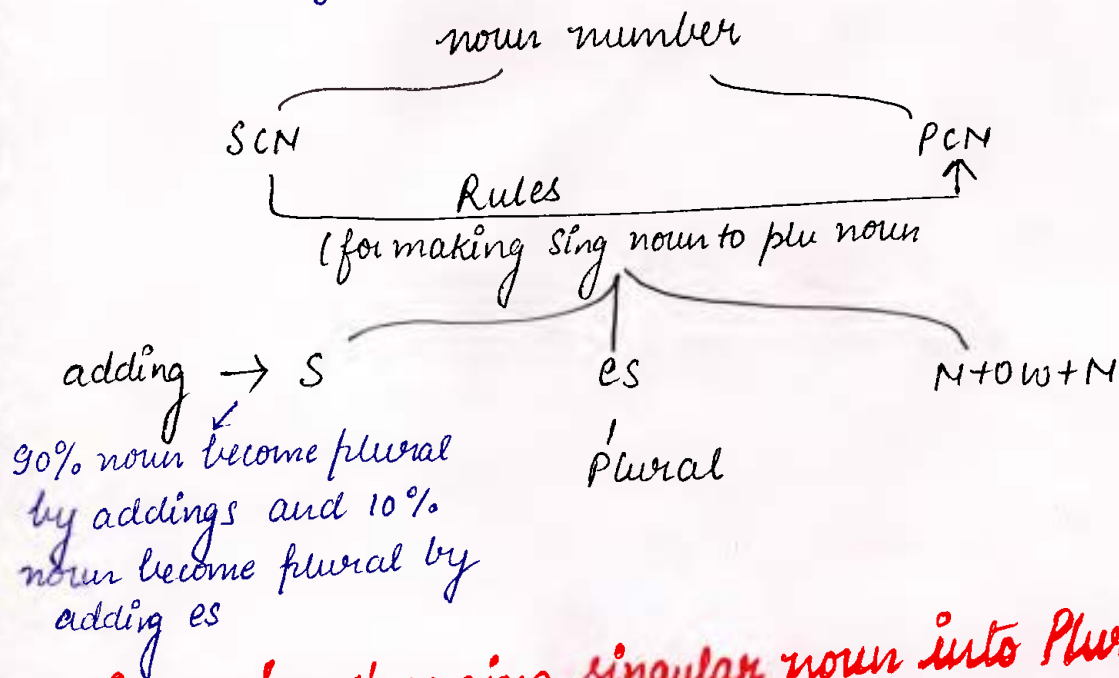 noun number
SCN PCN
Rules
(for making Sing noun to plu noun
adding → S es N+OW+N
90% noun become plural Plural
by addings and 10%
noun become plural by
adding es
singular noun into Plur